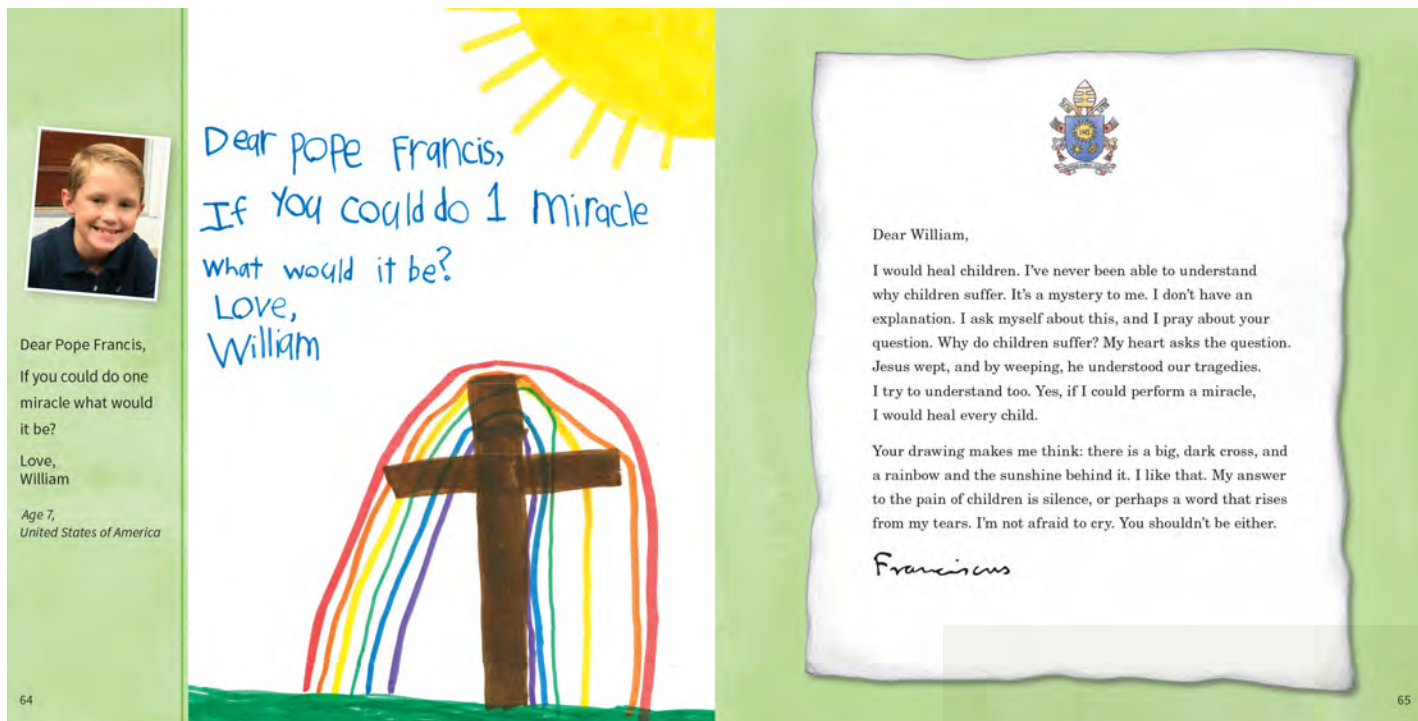 Dear Pope Francis,
If you could do one
miracle what would
it be?
Love,
William
Age 7,
United States of America
64
Dear Pope Francis,
If You could do 1 Miracle
What would it be?
Love,
William
Dear William,
I would heal children. I’ve never been able to understand
why children suffer. It’s a mystery to me. I don’t have an
explanation. I ask myself about this, and I pray about your
question. Why do children suffer? My heart asks the question.
Jesus wept, and by weeping, he understood our tragedies.
I try to understand too. Yes, if I could perform a miracle,
I would heal every child.
Your drawing makes me think: there is a big, dark cross, and
a rainbow and the sunshine behind it. I like that. My answer
to the pain of children is silence, or perhaps a word that rises
from my tears. I’m not afraid to cry. You shouldn’t be either.
Franciscus
65